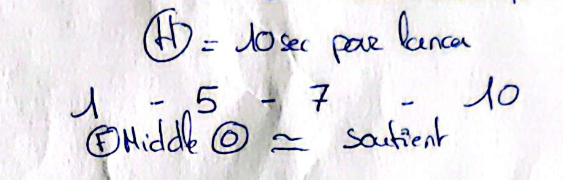 Ⓗ = 10 sec par lancer
1 - 5 - 7 - 10
Ⓕ Middle Ⓞ ≃ soutient